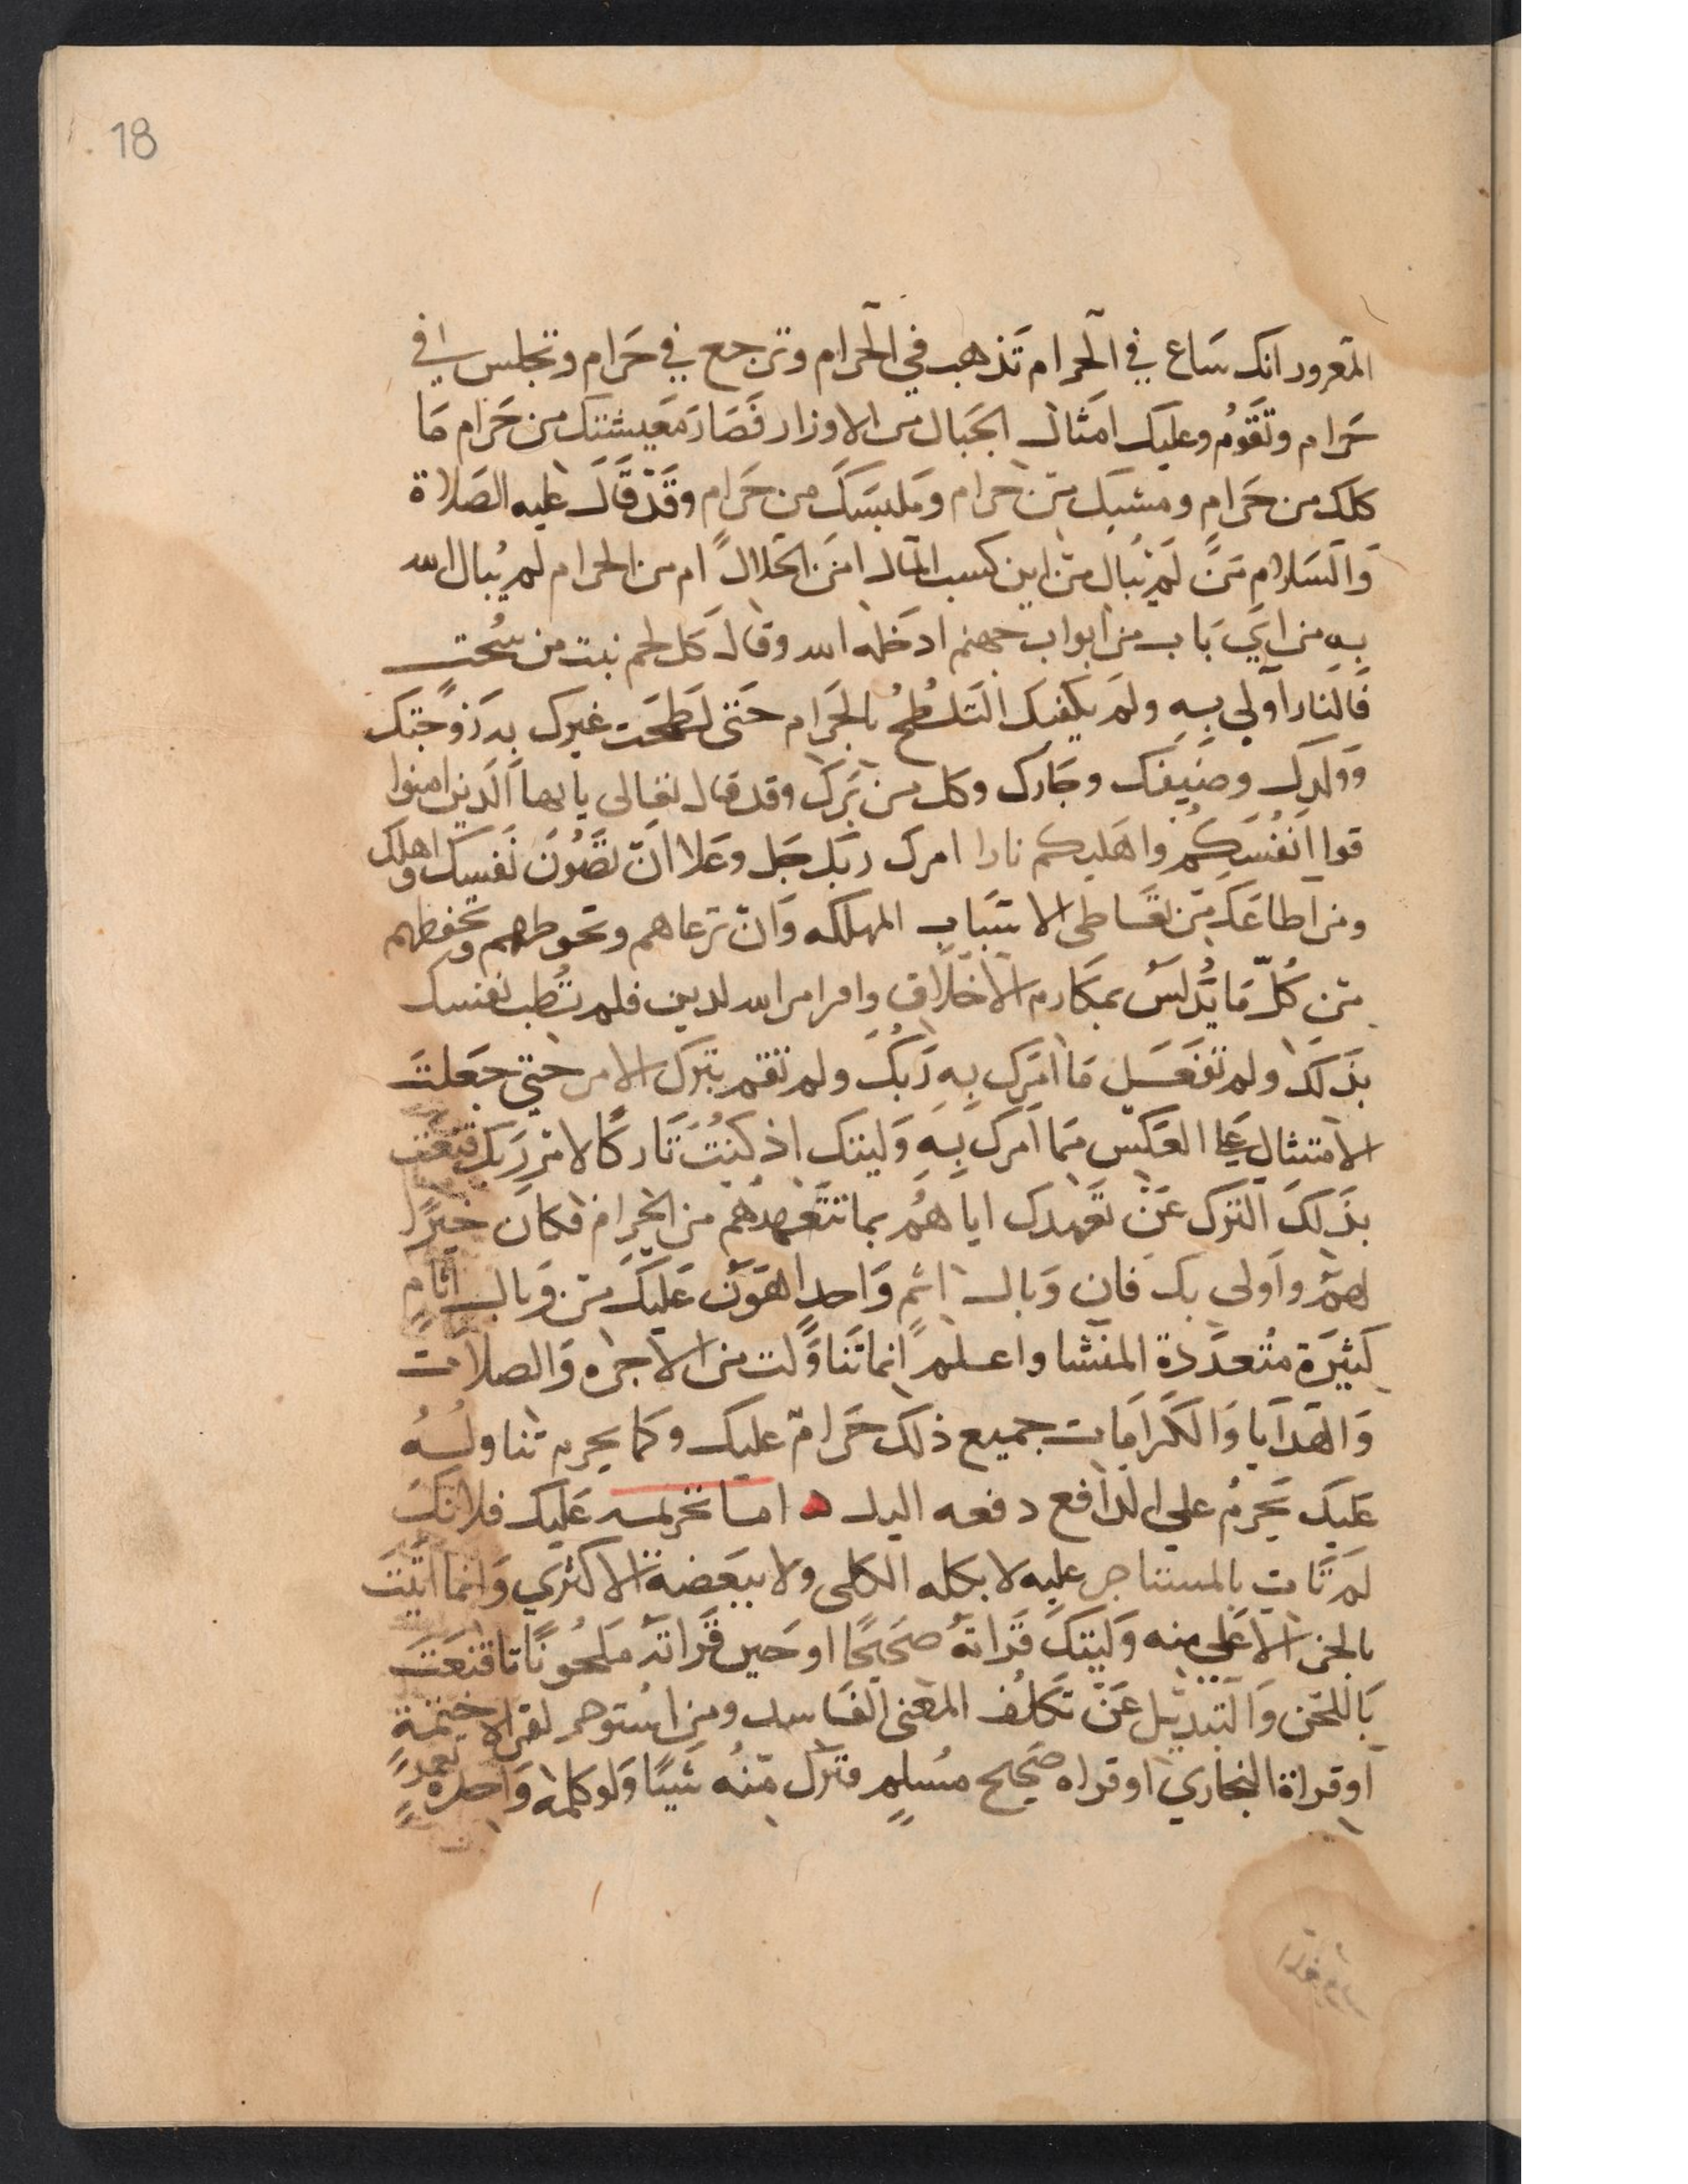 18
المغرور انك سَاع في الحرام تَذهب في الحرام وترجع في حَرام وتجلس في
حَرام وتَقَوُم وعليك امثال الجَبال من الاوزار فَصَارَ مَعَيشتك من حَرام مَا
كلك من حَرامٍ ومشبك من حرام وَملبَسَكَ من حَرامٍ وقَدْ قَالَ عليه الصَلاة
وَالسَلام مَنَ لَمَ يُبال من اين كسب المال امنَ الحَلال ام من الحرام لم يُبال الله
بِهِ من ايَ بَاب من ابواب جهنم ادخَله الله وقال كل لحم نبت من سُحت
فَالنار اَولي بِهِ ولم يكفيك التَلَطُخُ بالحَرام حَتى لَطَخت غيرك به زَوجتك
وَولدك وضَيفك وجَارك وكل من بَرَكَ وقد قال تعالى يا ايها الَذين امنوا
قوا اَنفُسَكُم واهَليكم نارا امرك ربك جَل وعَلا انّ تصُونَ نَفسك واهلك
ومن اطاعَك من تعَاطى الاسَباب المهلكه وَانّ ترعاهم وتحوطهم وتحفظهم
من كُلّ مَا يُدلسَ بمكارم الاخلاق وامر امر الله لدين فلم تُطب نفسك
بذَلكَ ولم تفعَل مَا امَرك بِهِ رَبُكَ ولم تقم بتَرك الامر حتى جَعلتَ
الامتثال عَلى العَكس مَما اَمرك بِهِ وَليتك اذ كنُت تَاركًا لامْرِ رَبك قنَعت
بذَلكَ التَرك عَن تَعَهدك اياهُم بما تتعَهدهُم من الحَرام فكان خَيرًا
لهم واَولى بك فان وَبال اثمٍ وَاحدٍ اهَوَن عَليكَ من وَبال اثامٍ
كثيَرة مُتعدَدَة المنَشا واعلم انما تَنَاوَلت من الاجره وَالصلات
وَالهَدَايا وَالكَرامَات جميع ذلك حَرامّ عليك وكما يحرم تناولُهُ
عَليك يَحرِمُ على الدَافع دفعه اليك ه اما تحريمه عَليك فلانك
لَم تَات بالمستاجر عليه لا بكله الكلى ولا ببَعضه الاكثري وَانما اتيَتَ
بالجز الاعَلى منه وَليَتك قَراتهُ صَحيحًا او حَين قَراتهَ مَلحُونًا قنعَتَ
بَاللحَن وَالتبديل عَنّ تكَلف المعَنى الفَاسد ومن استوجر لقراة ختمة
اَو قراة البخاري او قراه صَحيح مُسلمٍ فترَك منهُ شَيئًا وَلو كلمة وَاحدة تعمدً